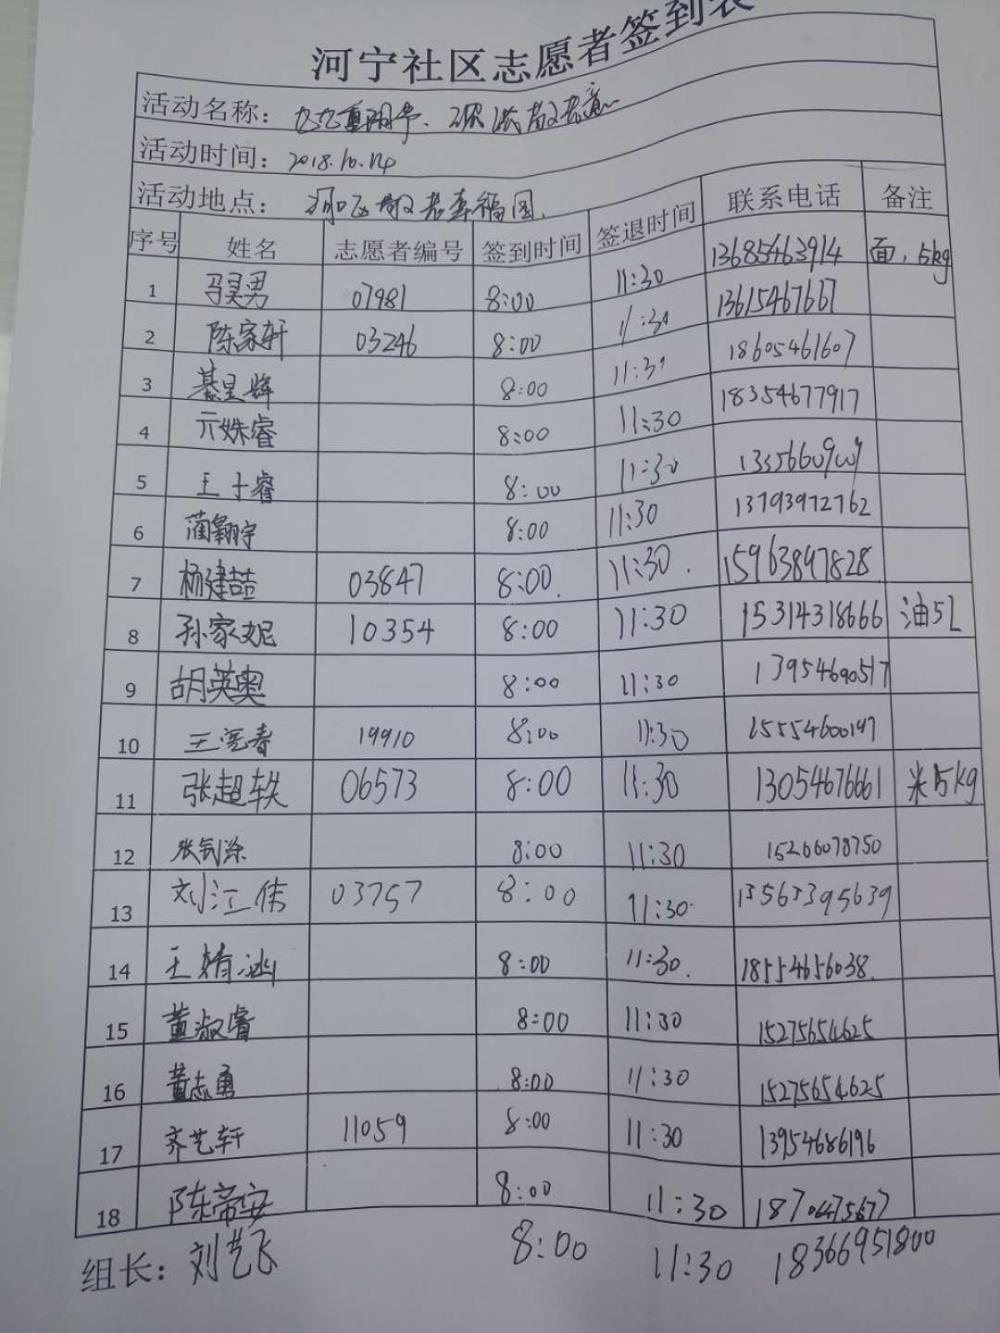 河宁社区志愿者签到表
活动名称：九九重阳节、浓浓敬老意
活动时间：2018.10.14
活动地点：敬老幸福园
序号 姓名 志愿者编号 签到时间 签退时间 联系电话 备注
1 男 07981 8:00 11:30 13685463914 面，5kg
2 陈家轩 03246 8:00 11:30 13615467667
3 綦星辉 8:00 11:30 18605461607
4 亓姝睿 8:00 11:30 18354677917
5 王子睿 8:00 11:30
6 蔺翱宇 8:00 11:30 13793972762
7 杨建喆 03847 8:00. 11:30. 15963897828
8 孙家妮 10354 8:00 11:30 15314318666 油5L
9 胡英奥 8:00 11:30 13954690517
10 王春 19910 8:00 11:30
11 张超轶 06573 8:00 11:30 13054676661 米5kg
12 张 8:00 11:30 15266078750
13 刘江伟 03757 8:00 11:30. 13563395639
14 王婧涵 8:00 11:30. 18554656038.
15 董淑睿 8:00 11:30 15275654625
16 董志勇 8:00 11:30 15275654625
17 齐艺轩 11059 8:00 11:30 13954686196
18 陈帝安 8:00 11:30
组长：刘艺飞 8:00 11:30 18366951800